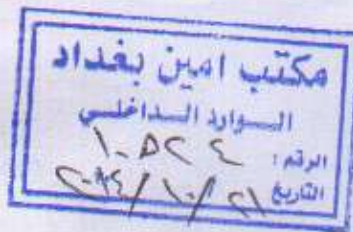 مكتب امين بغداد
الوارد الداخلي
الرقم : ١٠٥٢٤
التاريخ ٢١/١٠/